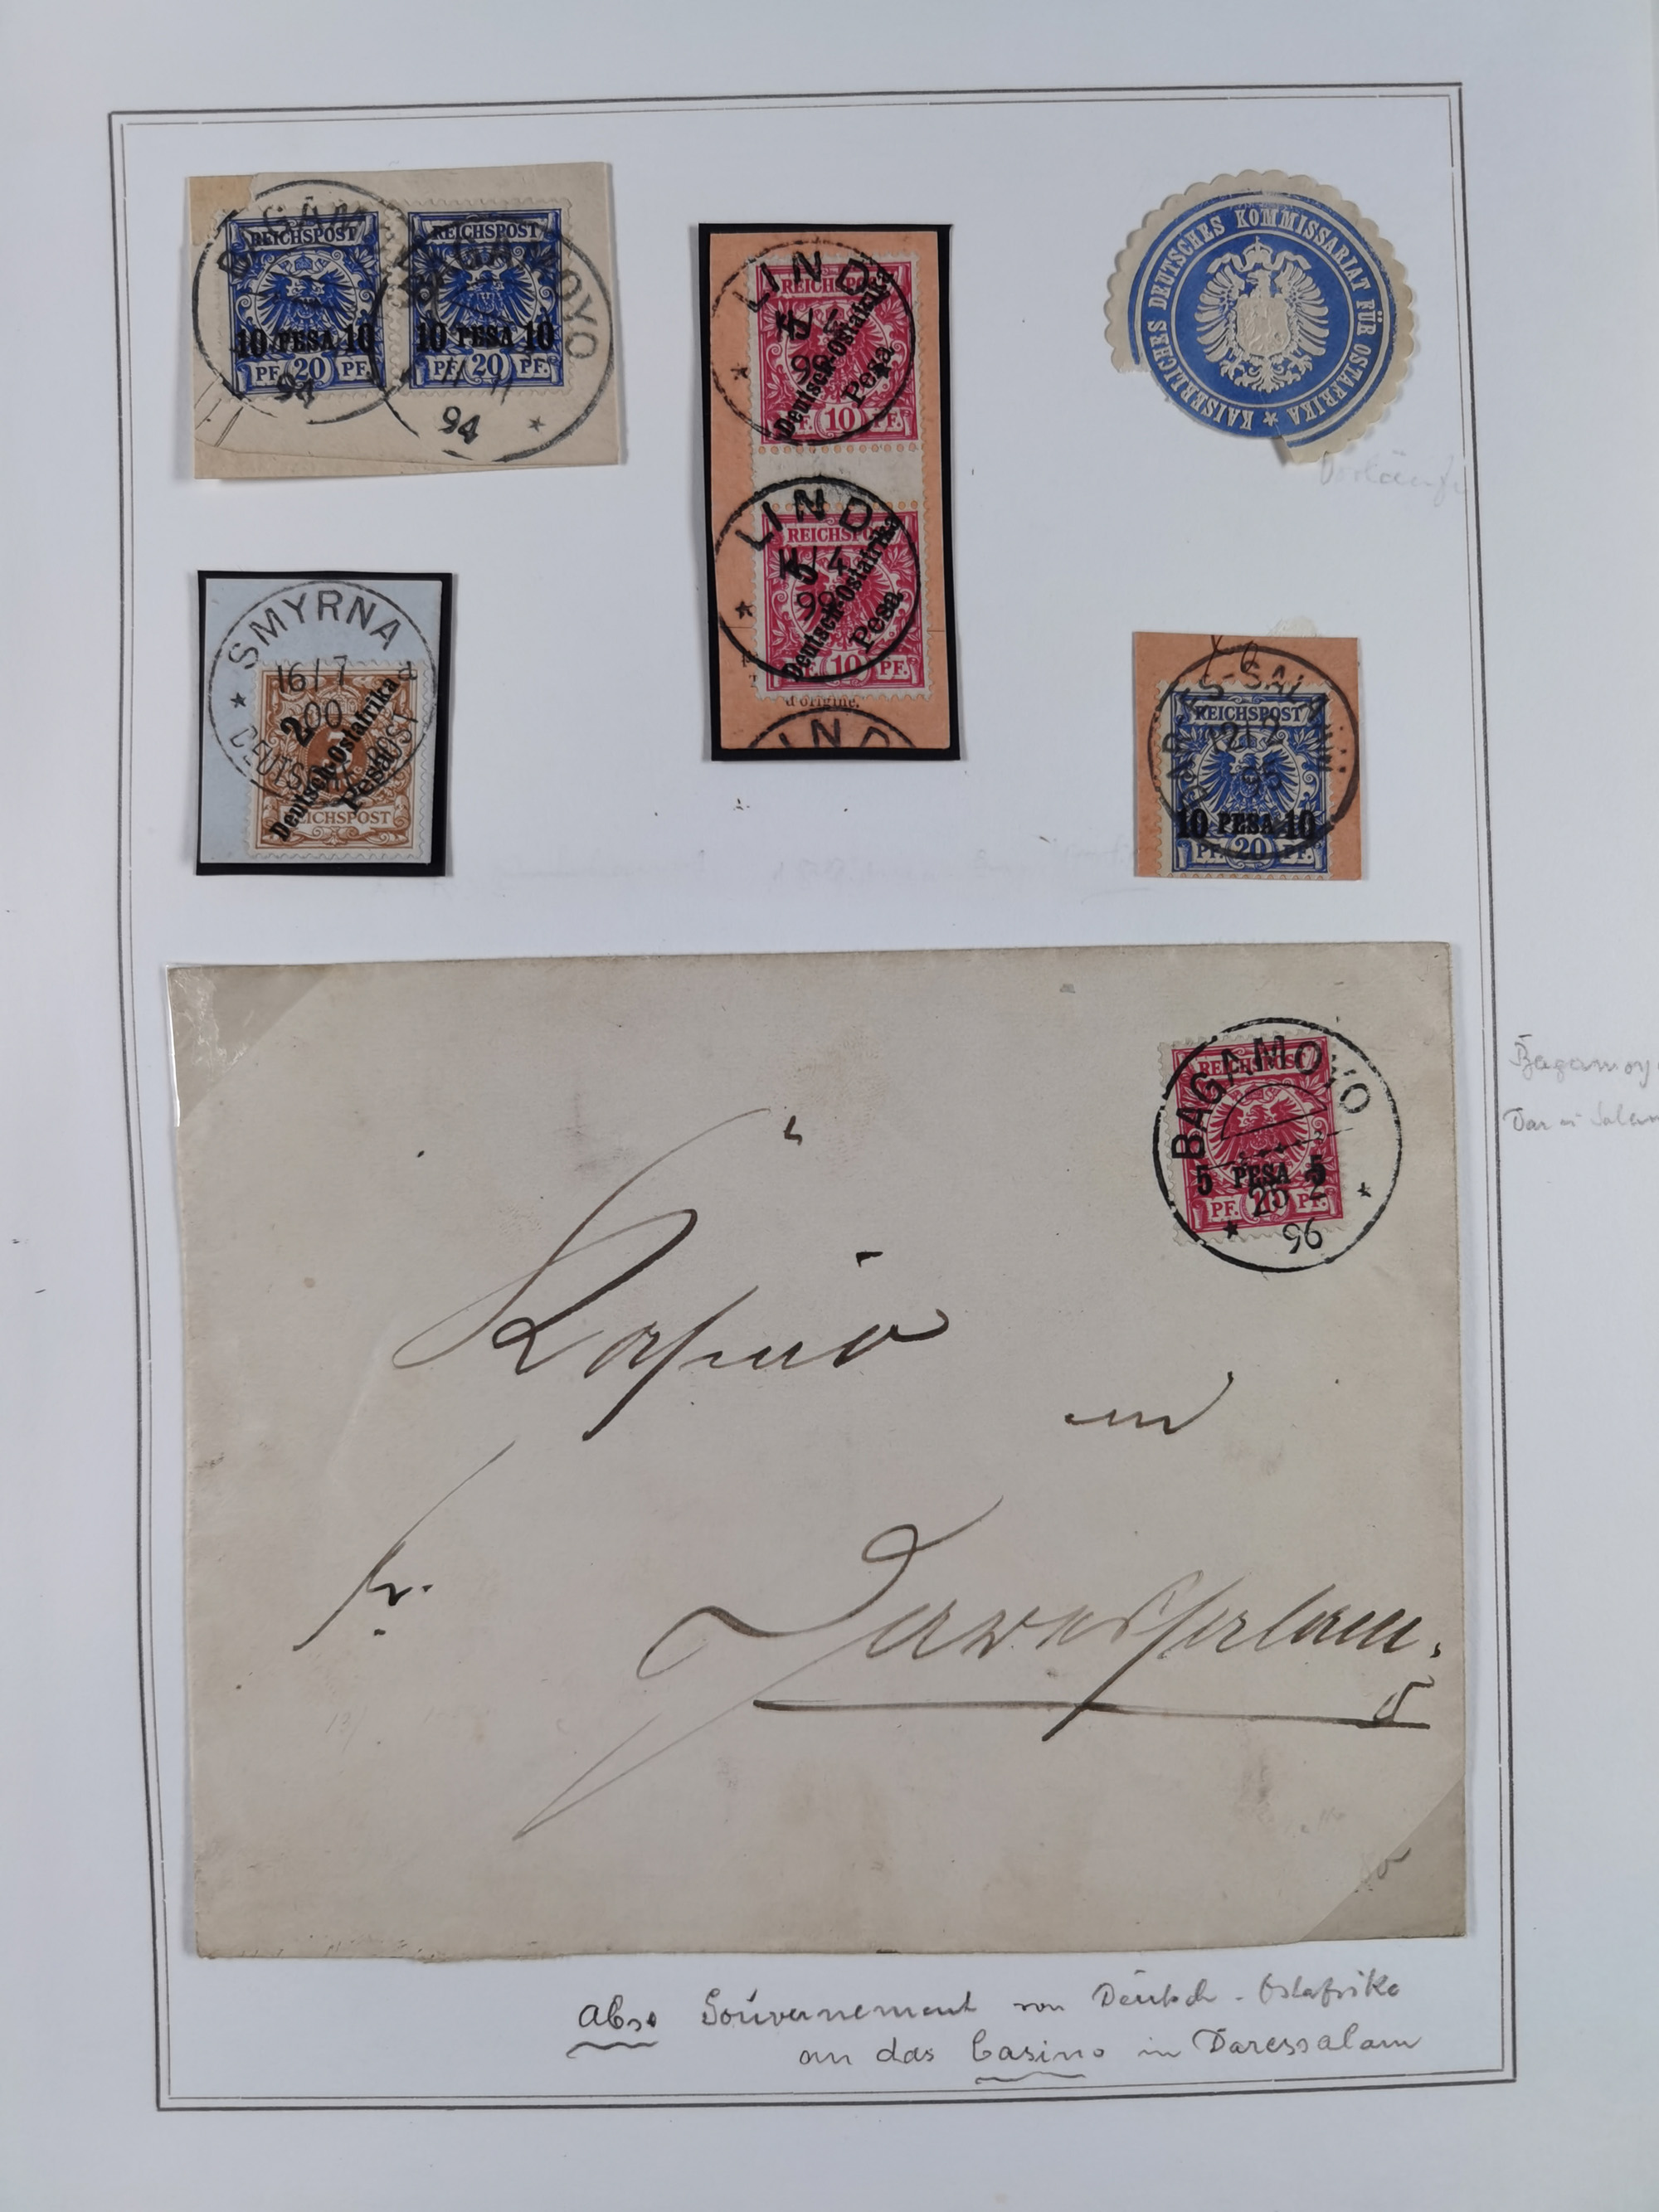 BAGAMOYO
BAGAMOYO
REICHSPOST
REICHSPOST
10 PESA 10
10 PESA 10
PF. 20 PF.
PF. 20 PF.
11 11
94
94
LIND
REICHSPOST
5
Deutsch-Ostafrika
Pesa
10 PF.
LIND
REICHSPOST
5
Deutsch-Ostafrika
Pesa
10 PF.
d'origine.
LIND
KAISERLICHES DEUTSCHES KOMMISSARIAT FÜR OSTAFRIKA
SMYRNA
16/7
00
2
Deutsch-Ostafrika
Pesa
REICHSPOST
DAR-ES-SALAAM
REICHSPOST
12/2
95
10 PESA 10
PF. 20 PF.
BAGAMOYO
REICHSPOST
5 PESA 5
PF. 10 PF.
25 2
96
Kasino
in
Daressalam.
Bagamoyo
Dar es Salam
Abs. Gouvernement von Deutsch-Ostafrika
an das Casino in Daressalam